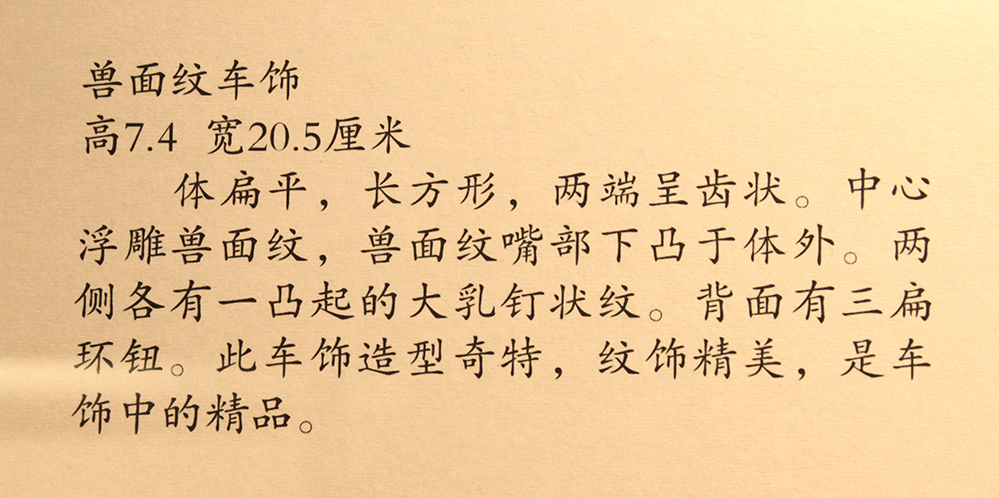 兽面纹车饰
高7.4 宽20.5厘米
体扁平，长方形，两端呈齿状。中心
浮雕兽面纹，兽面纹嘴部下凸于体外。两
侧各有一凸起的大乳钉状纹。背面有三扁
环钮。此车饰造型奇特，纹饰精美，是车
饰中的精品。